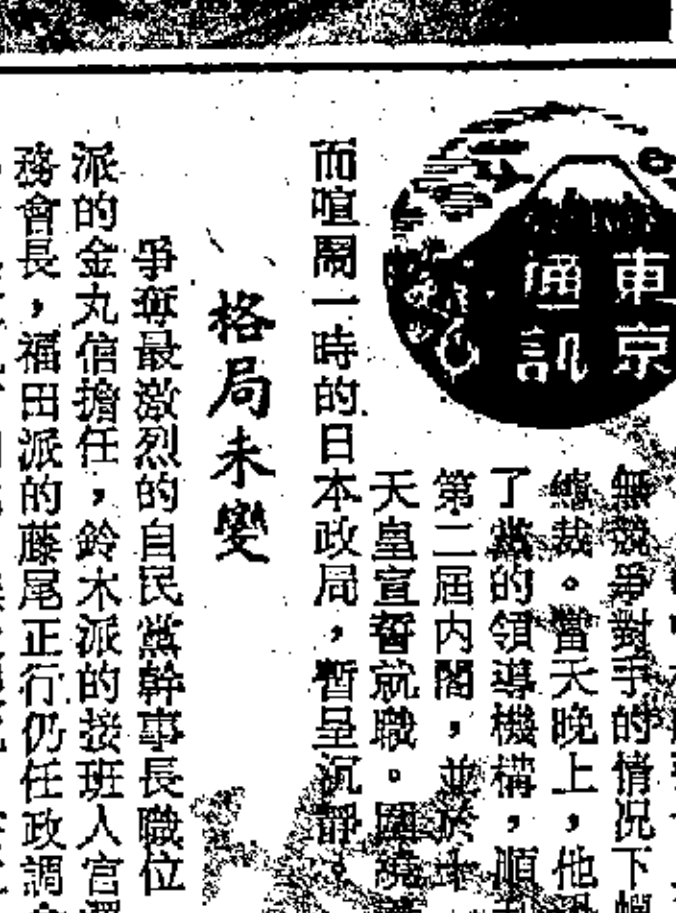 東京
通訊
無競爭對手的情況下
總裁。當天晚上，他
了黨的領導機構，順
第二屆內閣，並於
天皇宣誓就職。圍繞
而喧鬧一時的日本政局，暫呈沉靜。
格局未變
爭奪最激烈的自民黨幹事長職位
派的金丸信擔任，鈴木派的接班人宮
務會長，福田派的藤尾正行仍任政調